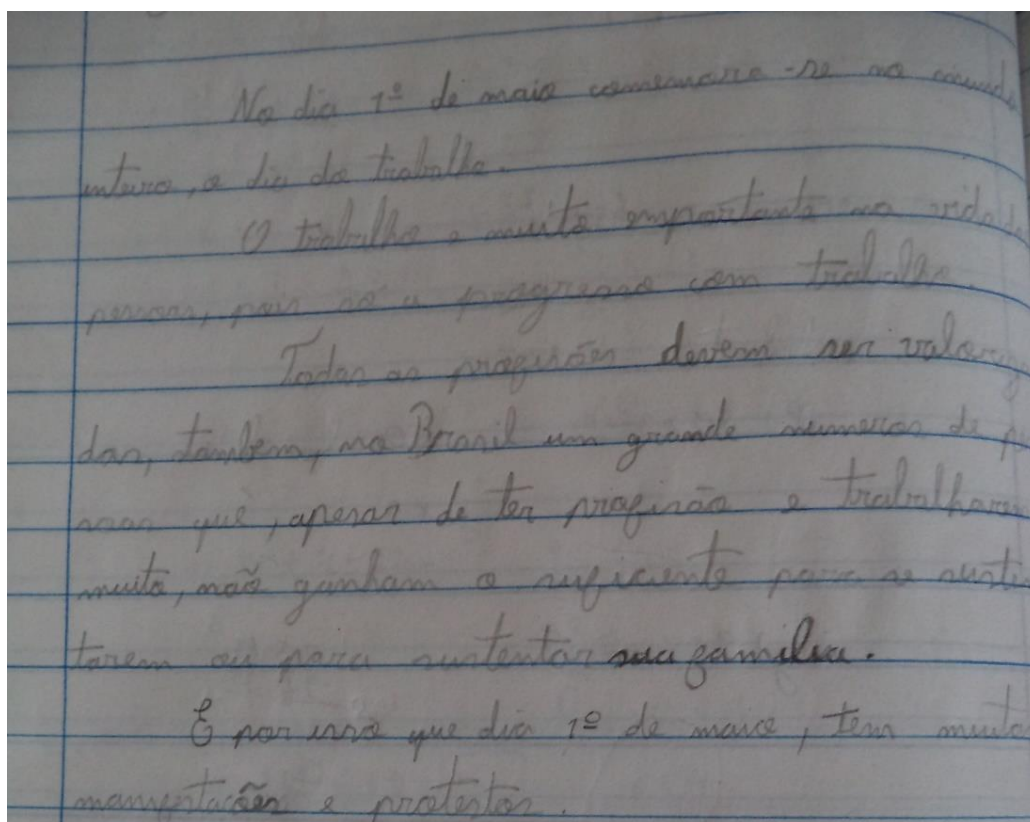 No dia 1º de maio comemora-se no mund
inteiro, o dia do trabalho.
O trabalho e muito emportante na vida d
pessoas, pois so a progresso com trabalho.
Todas as profisões devem ser valoriza
das, tambem, no Brasil um grande numeros de pe
soas que, apesar de ter profisão e trabalharem
muito, não ganham o suficiente para se susten
tarem ou para sustentar sua familia.
É por isso que dia 1º de maio, tem muita
manifestações e protestos.